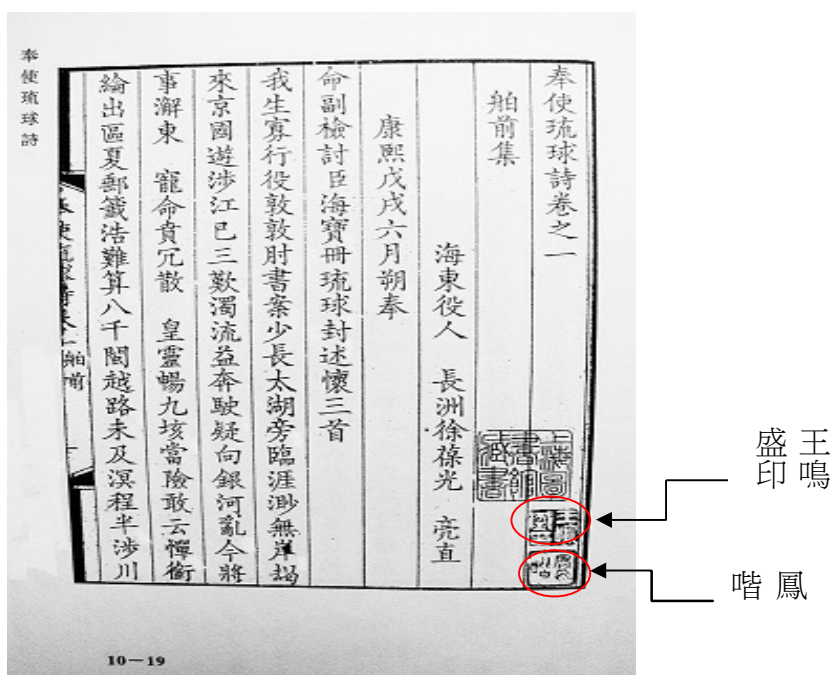 奉使琉球詩卷之一
舶前集
海東役人 長洲徐葆光 亮直
康熙戊戌六月朔奉
命副檢討臣海寶冊琉球封述懷三首
我生寡行役敦敦肘書案少長太湖旁臨涯渺無岸朅
來京國遊涉江已三歎濁流益奔駛疑向銀河亂今將
事澥東 寵命賁冗散 皇靈暢九垓當險敢云憚銜
綸出區夏郵籤浩難算八千閩越路未及溟程半涉川
舶前
奉使琉球詩
10—19
上海圖書館藏書
王鳴
盛印
鳳喈